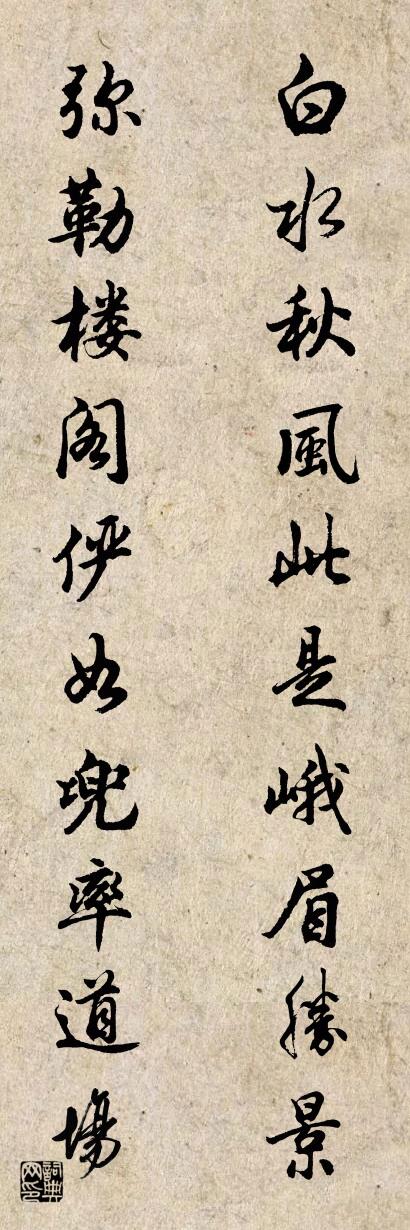 白水秋風此是峨眉勝景
弥勒楼阁俨如兜率道場
詞典网印